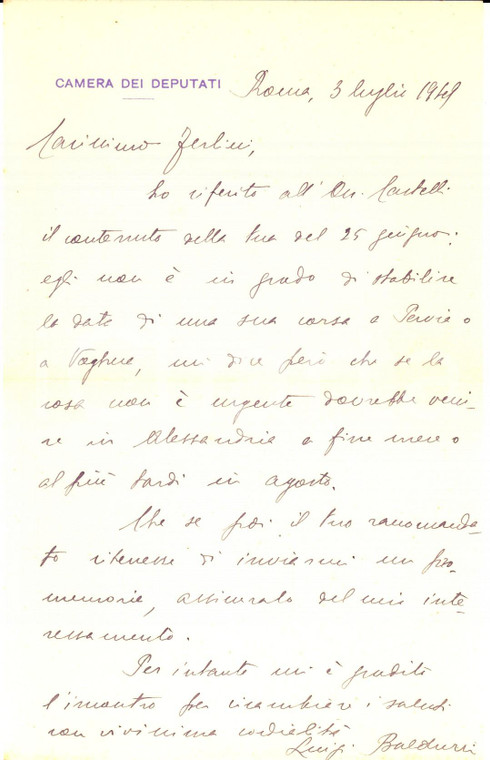 CAMERA DEI DEPUTATI Roma, 3 luglio 1949
Carissimo Zerlini,
ho riferito all' On.
il contenuto della tua del 25 giugno:
egli non è in grado di stabilire
la data di una sua corsa a Pavia o
a Voghera, mi dice però che se la
cosa non è urgente dovrebbe veni-
re in Alessandria a fine mese o
al più tardi in agosto.
Che se poi il tuo raccomanda-
to ritenesse di inviarmi un pro-
memoria, assicuralo del mio inte-
ressamento.
Per intanto mi è gradito
l'incontro per ricambiare i saluti
con vivissima cordialità
Luigi